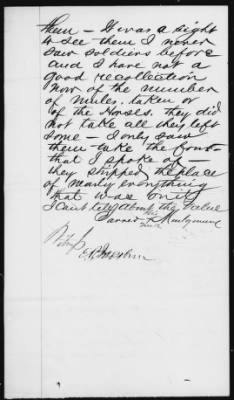 them - It was a sight
to see them I never
saw soldiers before
and I have not a
good recollection
now of the number
of mules. taken or
of the Horses. they did
not take all they left
some - I only saw
them take the four
that I spoke of -
they stripped the place
of nearly everything
that was on it
I cant tell about the value
his
Montgomery
mark